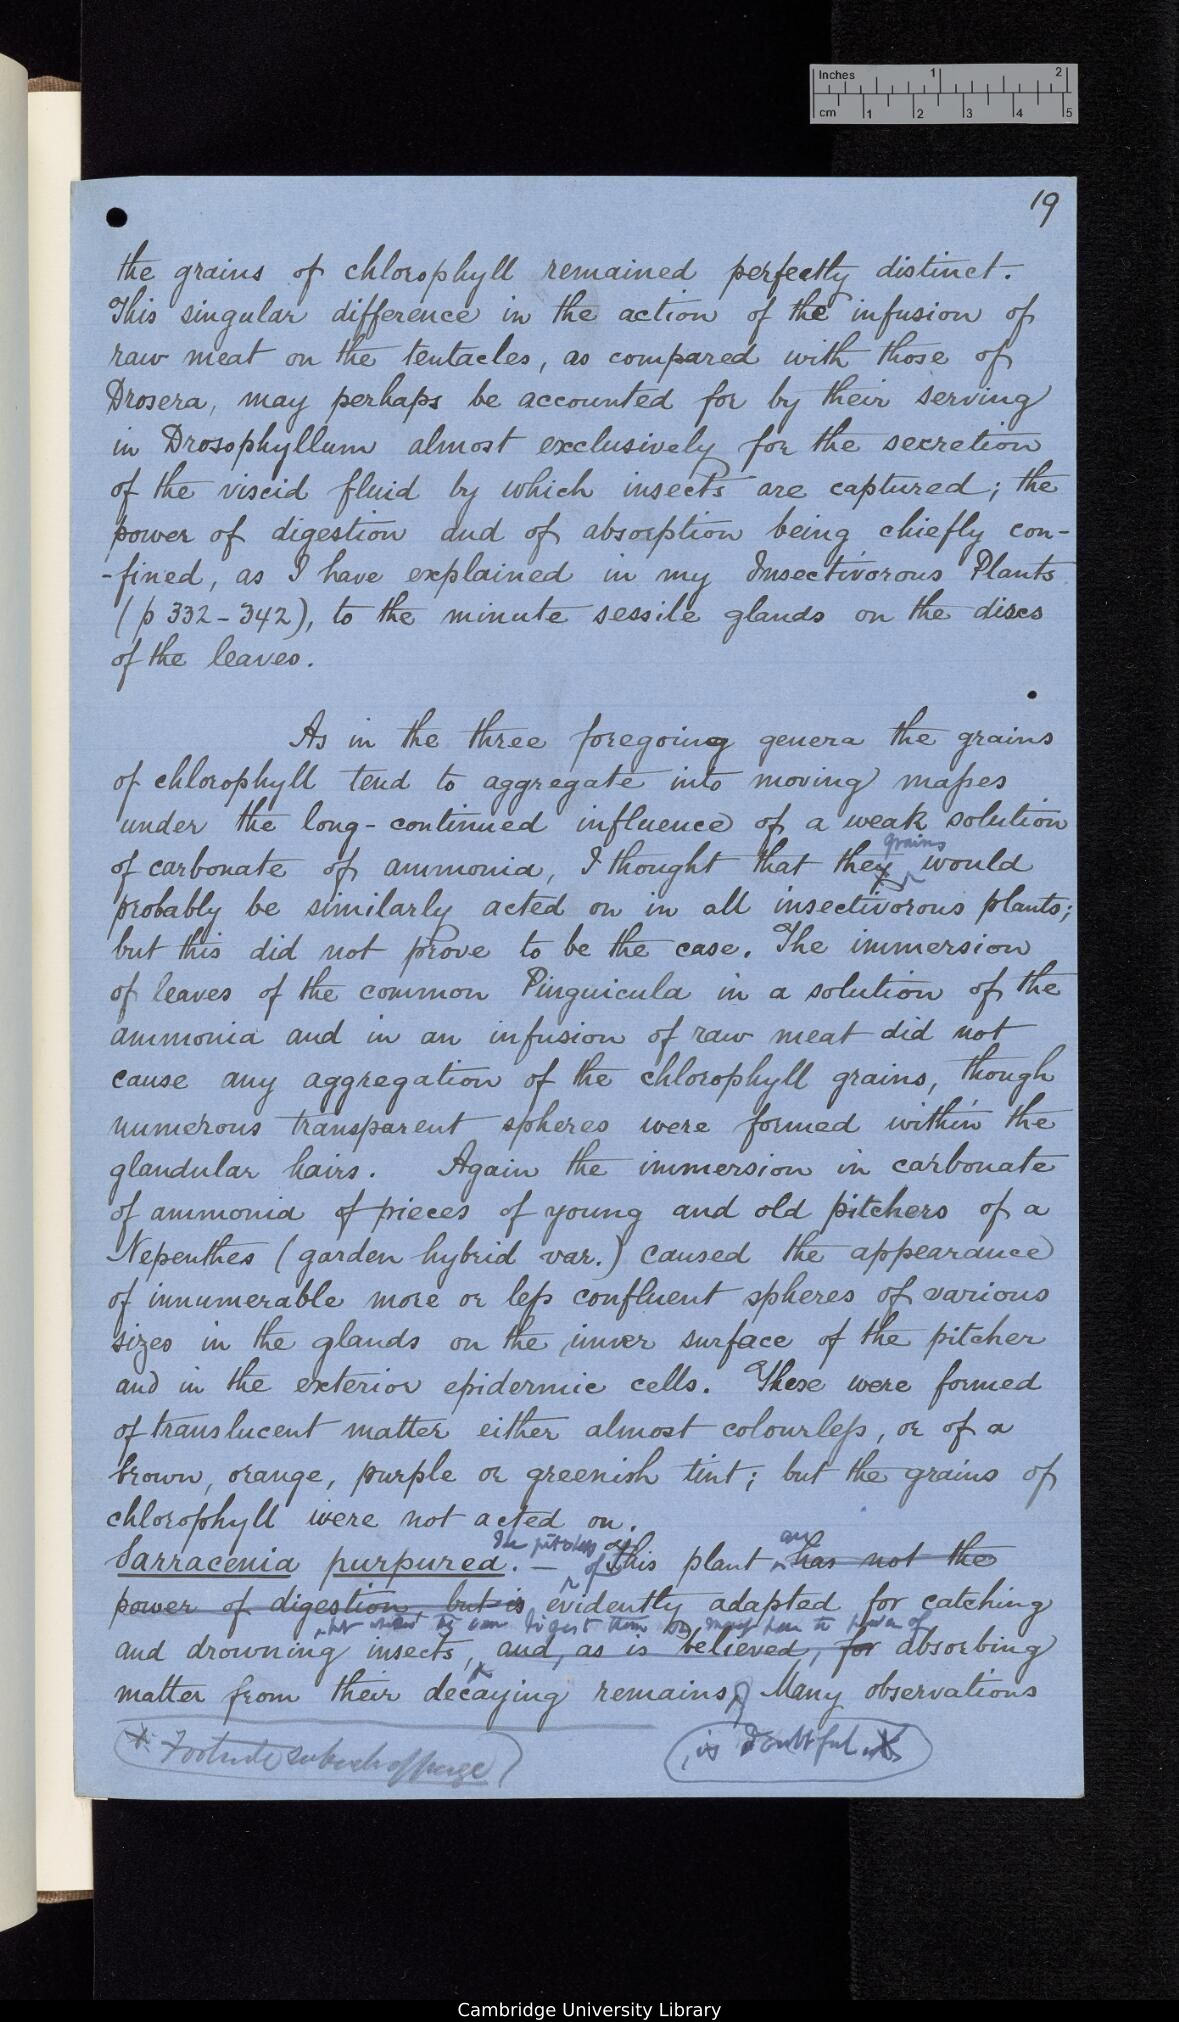 Inches 1 2
cm 1 2 3 4 5
19
the grains of chlorophyll remained perfectly distinct.
This singular difference in the action of the infusion of
raw meat on the tentacles, as compared with those of
Drosera, may perhaps be accounted for by their serving
in Drosophyllum almost exclusively for the secretion
of the viscid fluid by which insects are captured; the
power of digestion and of absorption being chiefly con-
-fined, as I have explained in my Insectivorous Plants
(p 332-342), to the minute sessile glands on the discs
of the leaves.
As in the three foregoing genera the grains
of chlorophyll tend to aggregate into moving masses
under the long-continued influence of a weak solution
grains
of carbonate of ammonia, I thought that they would
probably be similarly acted on in all insectivorous plants;
but this did not prove to be the case. The immersion
of leaves of the common Pinguicula in a solution of the
ammonia and in an infusion of raw meat did not
cause any aggregation of the chlorophyll grains, though
numerous transparent spheres were formed within the
glandular hairs. Again the immersion in carbonate
of ammonia of pieces of young and old pitchers of a
Nepenthes (garden hybrid var.) caused the appearance
of innumerable more or less confluent spheres of various
sizes in the glands on the inner surface of the pitcher
and in the exterior epidermic cells. These were formed
of translucent matter either almost colourless, or of a
brown, orange, purple or greenish tint; but the grains of
chlorophyll were not acted on.
The pitchers of are
Sarracenia purpurea. — this plant has not the
power of digestion but is evidently adapted for catching
but whether they can digest them or may have the power of
and drowning insects, and, as is believed, for absorbing
matter from their decaying remains Many observations
is doubtful
Footnote